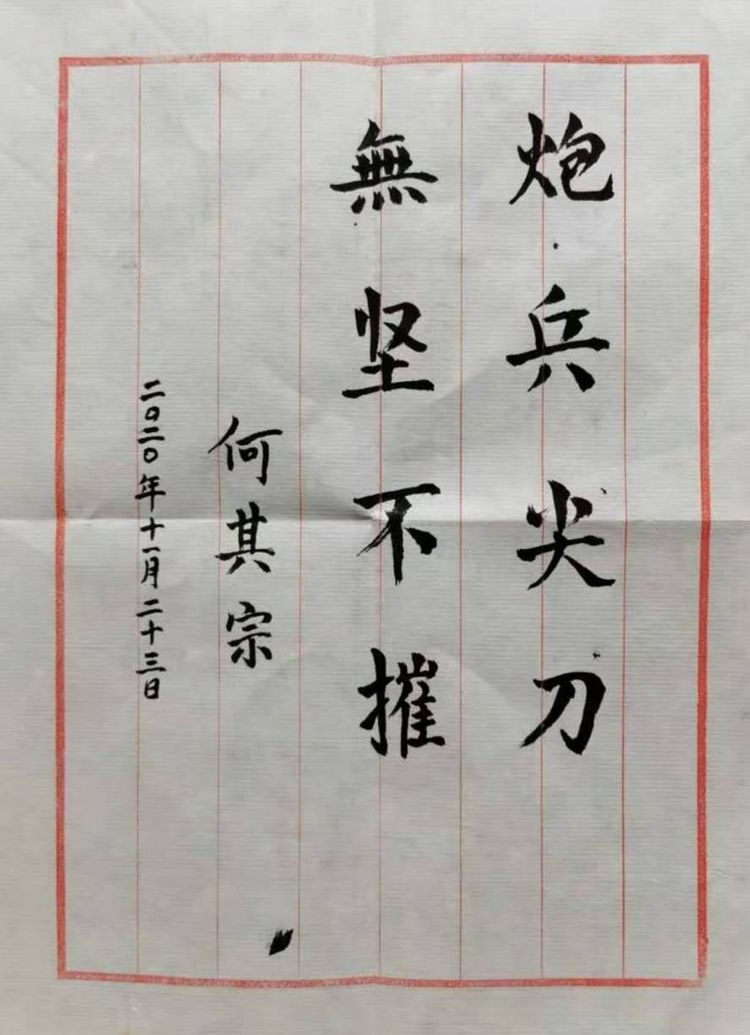 炮兵尖刀
無坚不摧
何其宗
二〇二〇年十一月二十三日